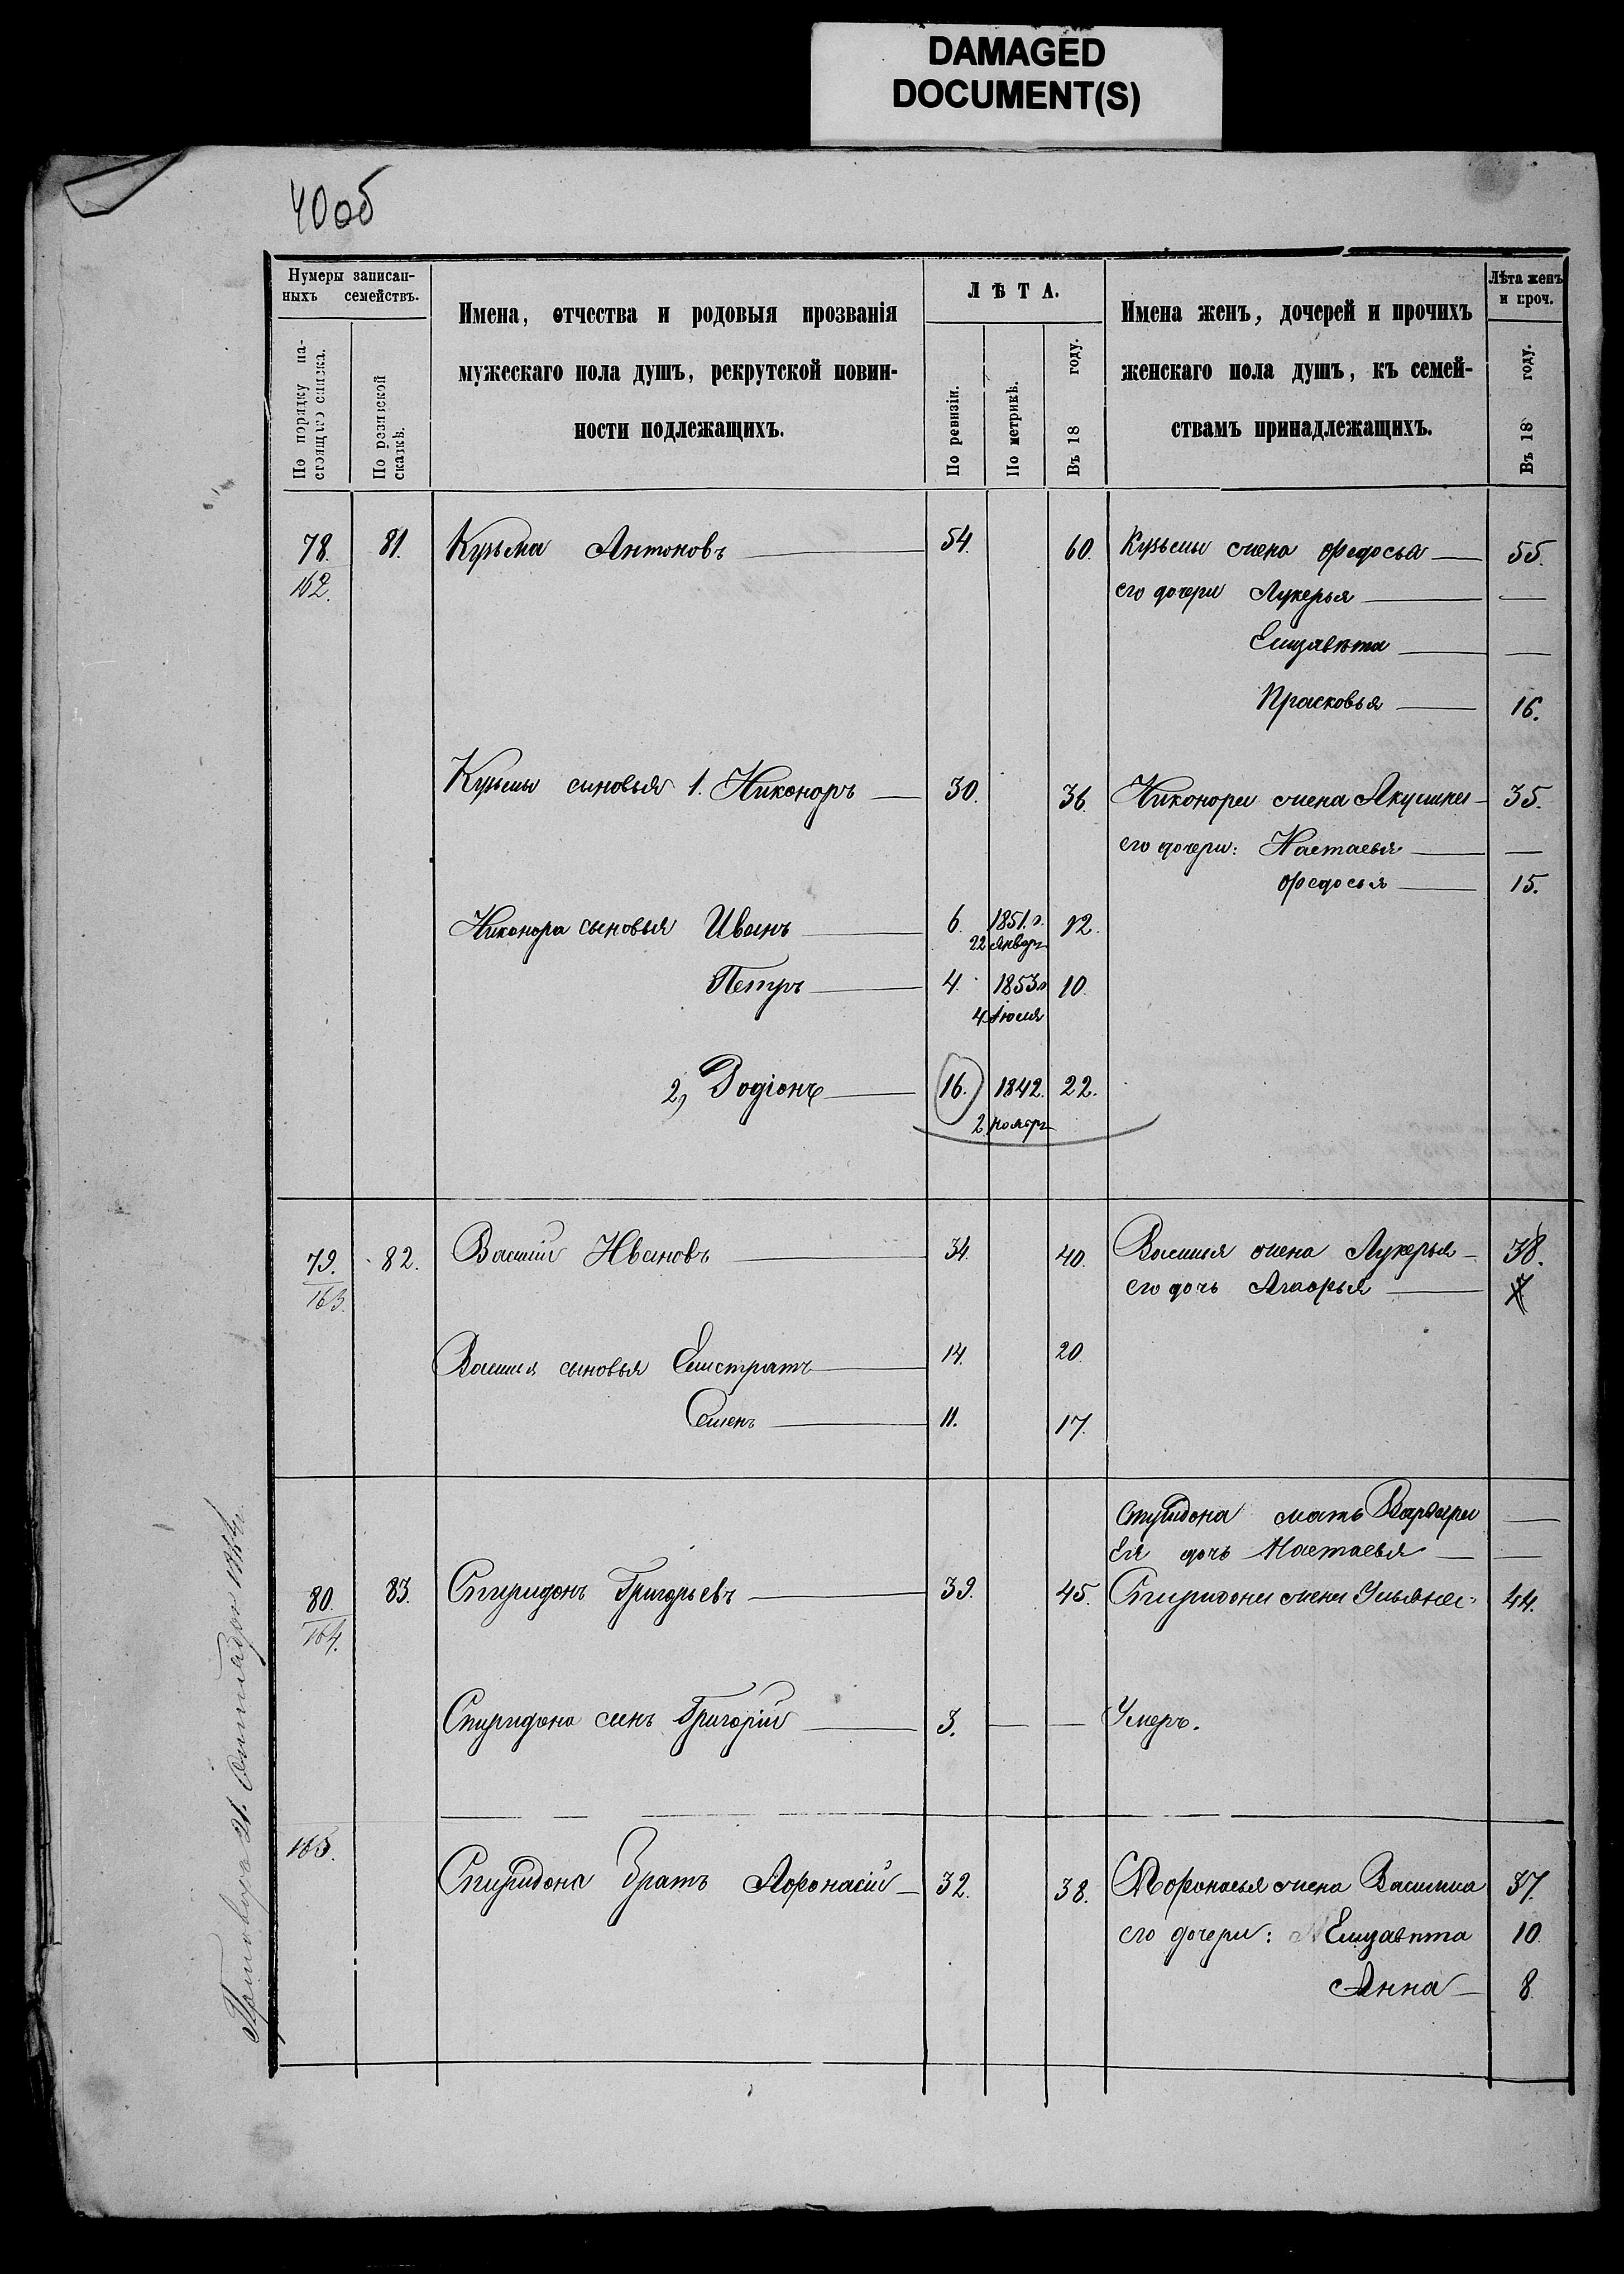 DAMAGED
DOCUMENT(S)
40об
Нумеры записан-
ныхъ семействъ.
По порядку на-
стоящаго списка.
По ревизской
сказкѣ.
Имена, отчества и родовыя прозванія
мужескаго пола душъ, рекрутской повин-
ности подлежащихъ.
ЛѢТА.
По ревизіи.
По метрикѣ.
Въ 18 году.
Имена женъ, дочерей и прочихъ
женскаго пола душъ, къ семей-
ствамъ принадлежащихъ.
Лѣта женъ
и проч.
Въ 18 году.
78. 81. Кузьма Антоновъ 54. 60. Кузьмы жена Федосья 55.
162. его дочери Лукерья —
Елизавѣта —
Прасковья 16.
Кузьмы сыновья 1. Никоноръ 30. 36. Никонора жена Акулина 35.
его дочери: Настасья —
Федосья 15.
Никонора сыновья Иванъ 6. 1851. г. 12.
22 январ.
Петръ 4. 1853 г 10.
4 Июля
2, Родіонъ 16. 1842. 22.
2 ноябр
79. 82. Василій Ивановъ 34. 40. Василия жена Лукерья 38.
163. его дочь Агафья 7
Василия сыновья Елистратъ 14. 20.
Семенъ 11. 17.
Спиридона мать Варвара —
Ея дочь Настасья —
80. 83. Спиридонъ Григорьевъ 39. 45. Спиридона жена Ульяна 44.
164.
Спиридона сынъ Григорій 3. — — Умеръ.
165.
Спиридона братъ Афонасій 32. 38. Афонасья жена Василиса 37.
его дочери: Елизавѣта 10
Анна 8